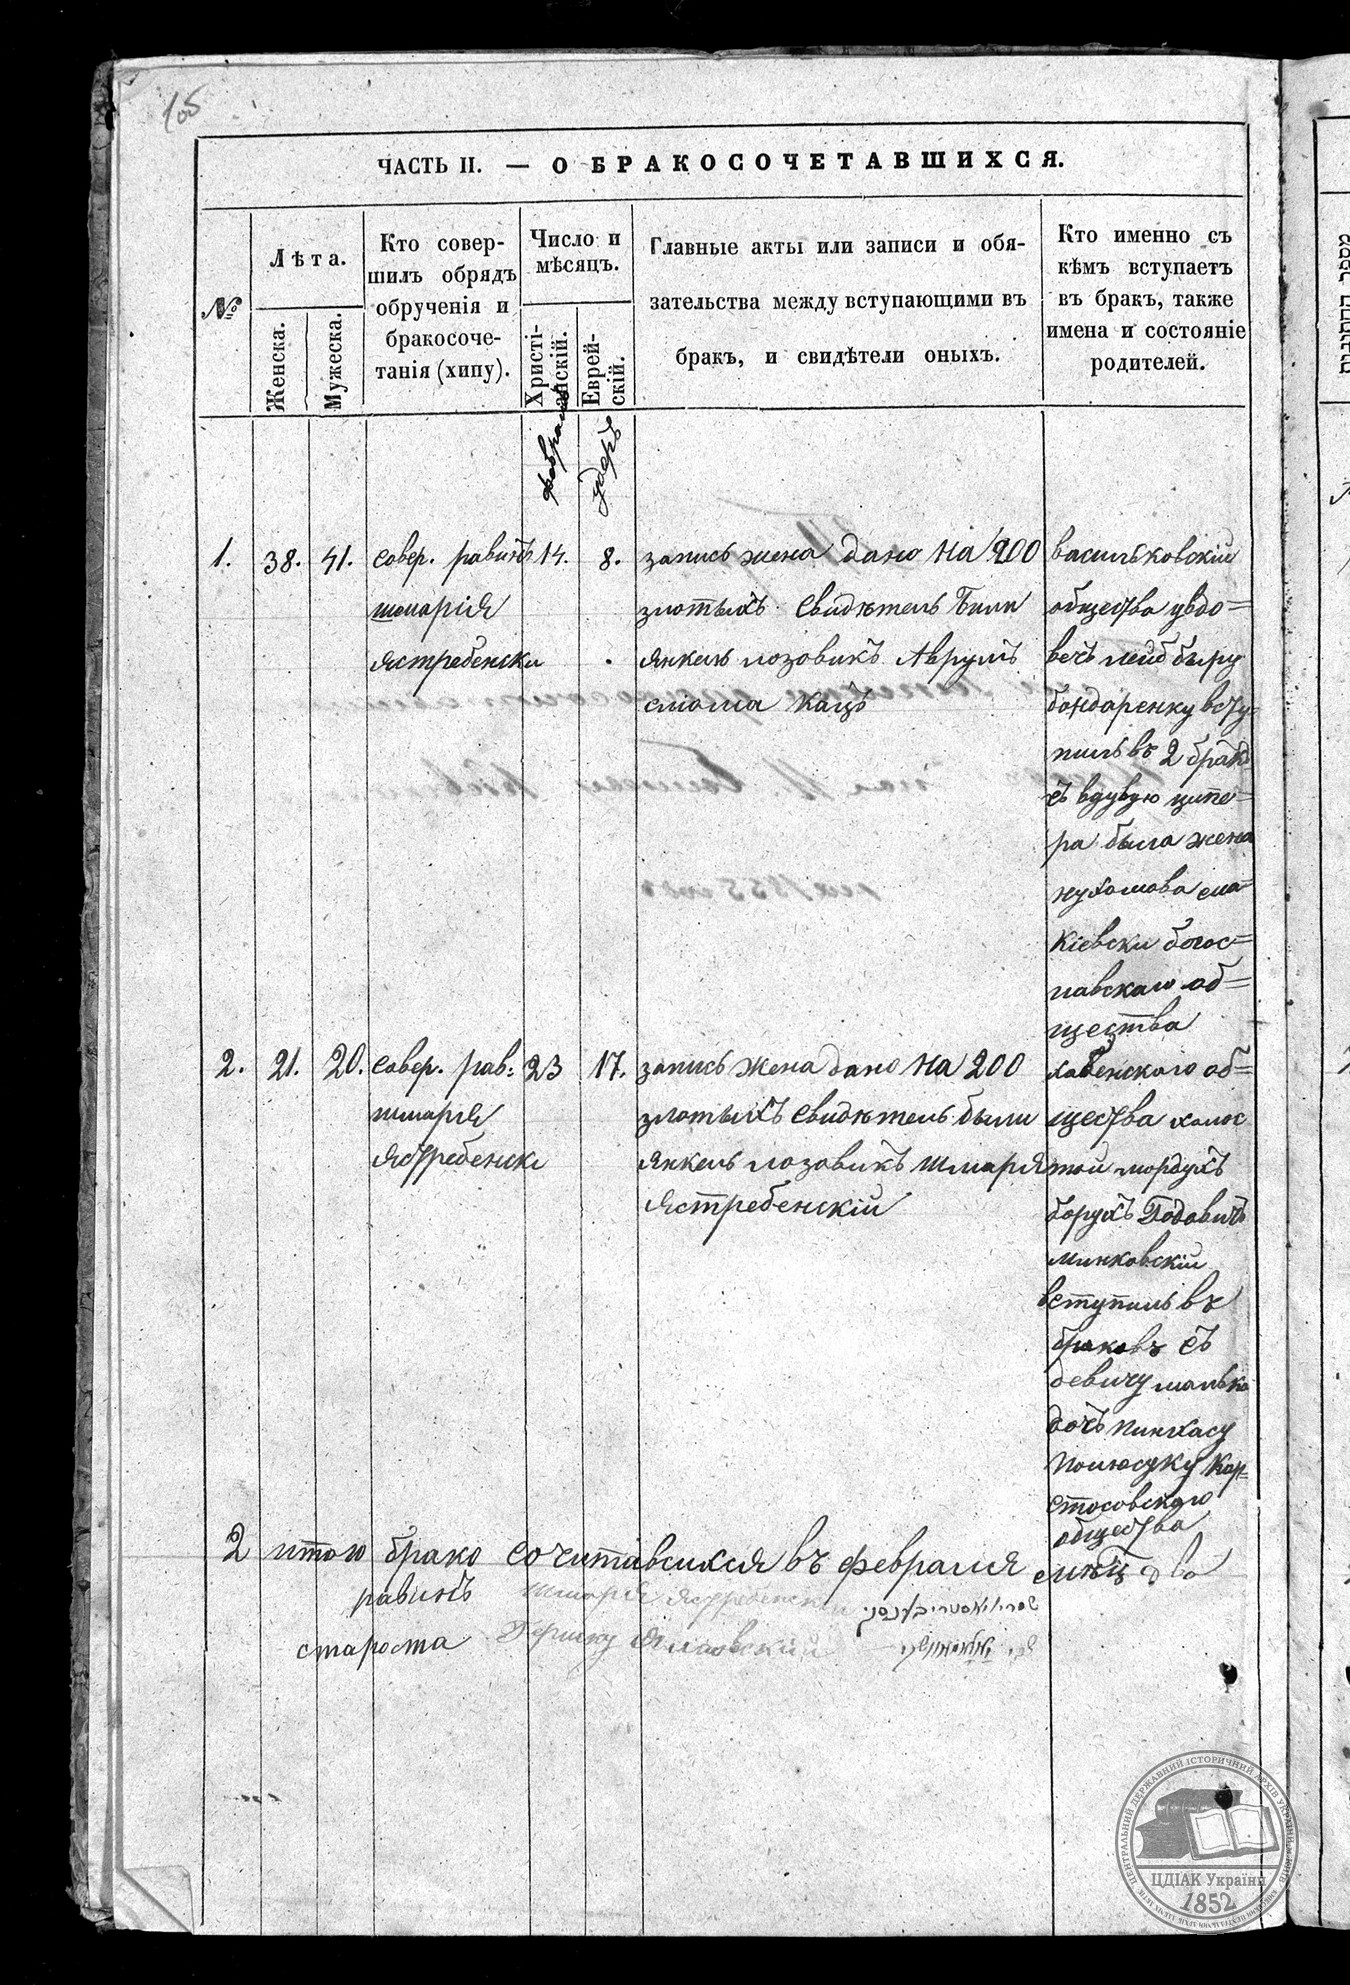 105
ЧАСТЬ II. — О БРАКОСОЧЕТАВШИХСЯ.
№
Лѣта.
Женска.
Мужеска.
Кто совер-
шилъ обрядъ
обрученія и
бракосоче-
танія (хипу).
Число и
мѣсяцъ.
Христі-
анскій.
Еврей-
скій.
Главные акты или записи и обя-
зательства между вступающими въ
бракъ, и свидѣтели оныхъ.
Кто именно съ
кѣмъ вступаетъ
въ бракъ, также
имена и состояніе
родителей.
февраль
удеръ
1.
38.
41.
совер. равинъ
шмарія
Ястребенски
14.
8.
запись жена дано на 200
злотыхъ свидѣтель Били
Янкель лозовикъ Аврумъ
сміома Кацъ
васильковскій
общества увдо=
вецъ лейб быру
бондаренку всту=
пиль въ 2 бракъ
съ вдувую ципе=
ра была жена
нухомова сма=
Кіевски богос=
лавскаго об=
щества
2.
21.
20.
совер. рав:
шмарія
Ястребенск
23
17.
запись жена дано на 200
злотыхъ свидѣтель были
Янкель лозовикъ шмаря
Ястребенскій
хабенского об=
щества холос
той мордухъ
борухъ
минковскій
вступиль въ
браковъ съ
девичу малька
дочь пинхасу
Кор=
стосовского
общества
2 итого брако сочитавсихся въ февраля
два
равинъ шмарія Ястребенскій
староста Гершку
ЦЕНТРАЛЬНИЙ ДЕРЖАВНИЙ ІСТОРИЧНИЙ АРХІВ УКРАЇНИ
ЦДІАК України
1852